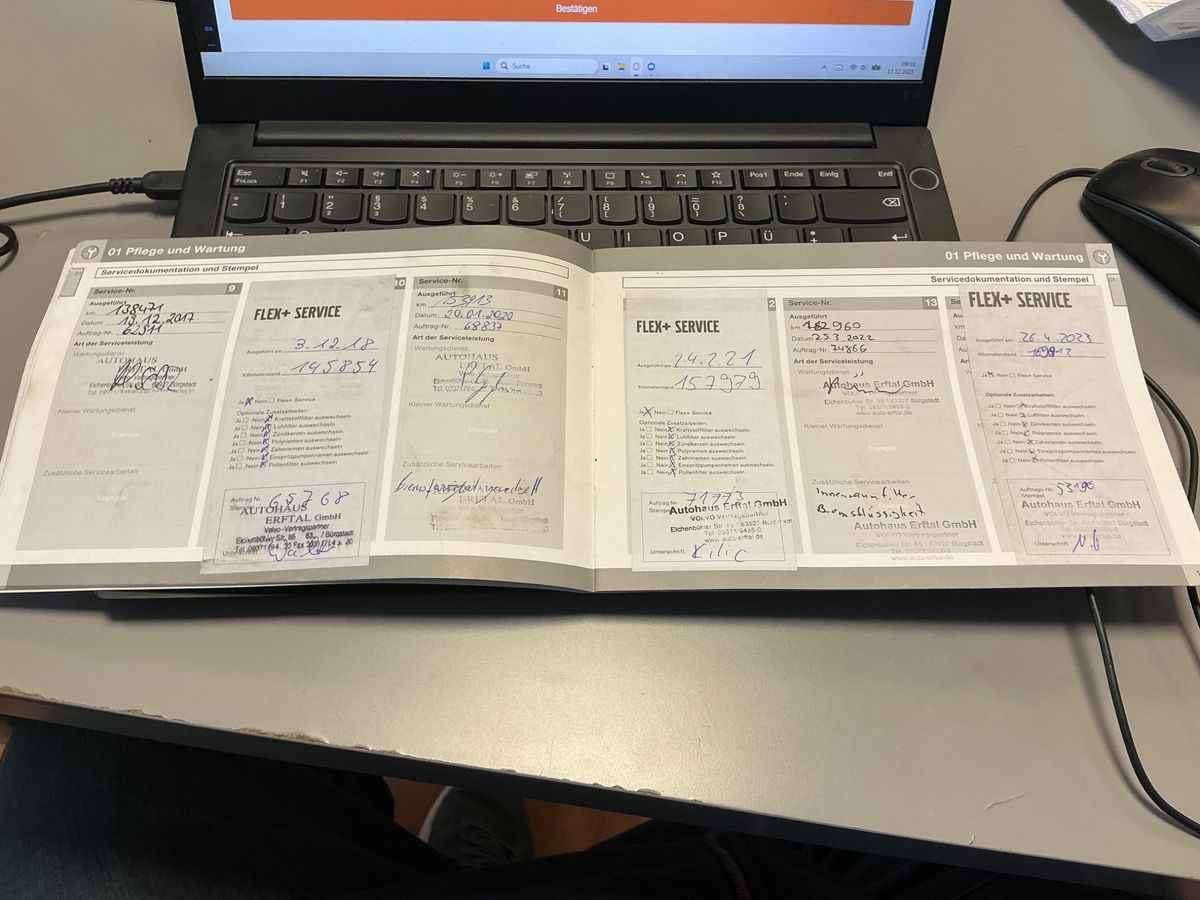 Bestätigen
Suche
01 Pflege und Wartung
Servicedokumentation und Stempel
Service-Nr. 9
Ausgeführt
km 138471
Datum 13.12.2017
Auftrag-Nr. 62511
Art der Serviceleistung
Wartungsdienst
AUTOHAUS
Kleiner Wartungsdienst
Zusätzliche Servicearbeiten
10
FLEX+ SERVICE
Ausgeführt am 3.12.18
Kilometerstand 145854
Ja Nein Flex+ Service
Optionale Zusatzarbeiten:
Ja Nein Kraftstofffilter auswechseln
Ja Nein Luftfilter auswechseln
Ja Nein Zündkerzen auswechseln
Ja Nein Polyriemen auswechseln
Ja Nein Zahnriemen auswechseln
Ja Nein Einspritzpumpenriemen auswechseln
Ja Nein Pollenfilter auswechseln
Auftrag Nr. 65768
AUTOHAUS
ERFTAL GmbH
Volvo-Vertragspartner
Service-Nr. 11
Ausgeführt
km
Datum 20.01.2020
Auftrag-Nr. 68837
Art der Serviceleistung
Wartungsdienst
AUTOHAUS
ERFTAL GmbH
Kleiner Wartungsdienst
Zusätzliche Servicearbeiten
ERFTAL GmbH
01 Pflege und Wartung
Servicedokumentation und Stempel
FLEX+ SERVICE
Ausgeführt am 24.2.21
Kilometerstand 157979
Ja Nein Flex+ Service
Optionale Zusatzarbeiten:
Ja Nein Kraftstofffilter auswechseln
Ja Nein Luftfilter auswechseln
Ja Nein Zündkerzen auswechseln
Ja Nein Polyriemen auswechseln
Ja Nein Zahnriemen auswechseln
Ja Nein Einspritzpumpenriemen auswechseln
Ja Nein Pollenfilter auswechseln
Auftrag Nr. 71973
Autohaus Erftal GmbH
VOLVO Vertragspartner
www.auto-erftal.de
Unterschrift Kilic
Service-Nr. 13
Ausgeführt
km 162960
Datum 25.3.2022
Auftrag-Nr. 74866
Art der Serviceleistung
Wartungsdienst
Autohaus Erftal GmbH
VOLVO Vertragspartner
Kleiner Wartungsdienst
Zusätzliche Servicearbeiten
Innenraumfilter
Bremsflüssigkeit
Autohaus Erftal GmbH
VOLVO Vertragspartner
FLEX+ SERVICE
Ausgeführt am 26.4.2023
Kilometerstand
Ja Nein Flex+ Service
Optionale Zusatzarbeiten:
Ja Nein Kraftstofffilter auswechseln
Ja Nein Luftfilter auswechseln
Ja Nein Zündkerzen auswechseln
Ja Nein Polyriemen auswechseln
Ja Nein Zahnriemen auswechseln
Ja Nein Einspritzpumpenriemen auswechseln
Ja Nein Pollenfilter auswechseln
Auftrags-Nr. 53190
Stempel
Autohaus Erftal GmbH
VOLVO Vertragspartner
www.auto-erftal.de
Unterschrift